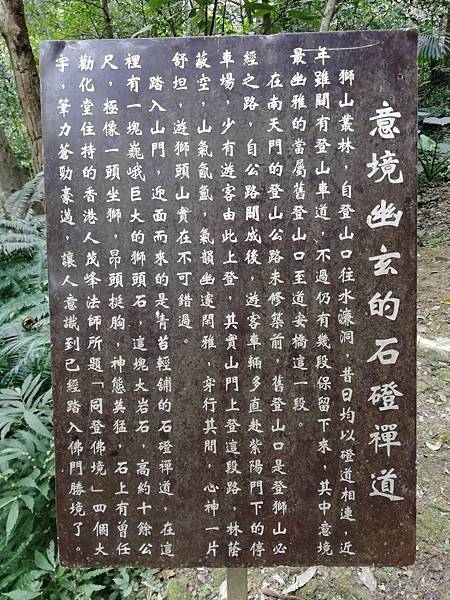 意境幽玄的石磴禪道
獅山叢林，自登山口往水濂洞，昔日均以磴道相連，近
年雖闢有登山車道，不過仍有幾段保留下來，其中意境
最幽雅的當屬舊登山口至道安橋這一段。
在南天門的登山公路未修築前，舊登山口是登獅山必
經之路，自公路開成後，遊客車輛多直赴紫陽門下的停
車場，少有遊客由此上登，其實山門上登這段路，林蔭
蔽空，山氣氤氳，氣韻幽邃閑雅，穿行其間，心神一片
舒坦，遊獅頭山實在不可錯過。
踏入山門，迎面而來的是青苔輕鋪的石磴禪道，在這
裡有一塊巍峨巨大的獅頭石，這塊大岩石，高約十餘公
尺，極像一頭坐獅，昂頭挺胸，神態英猛，石上有曾任
勸化堂住持的香港人茂峰法師所題「同登佛境」四個大
字，筆力蒼勁豪邁，讓人意識到已經踏入佛門勝境了。